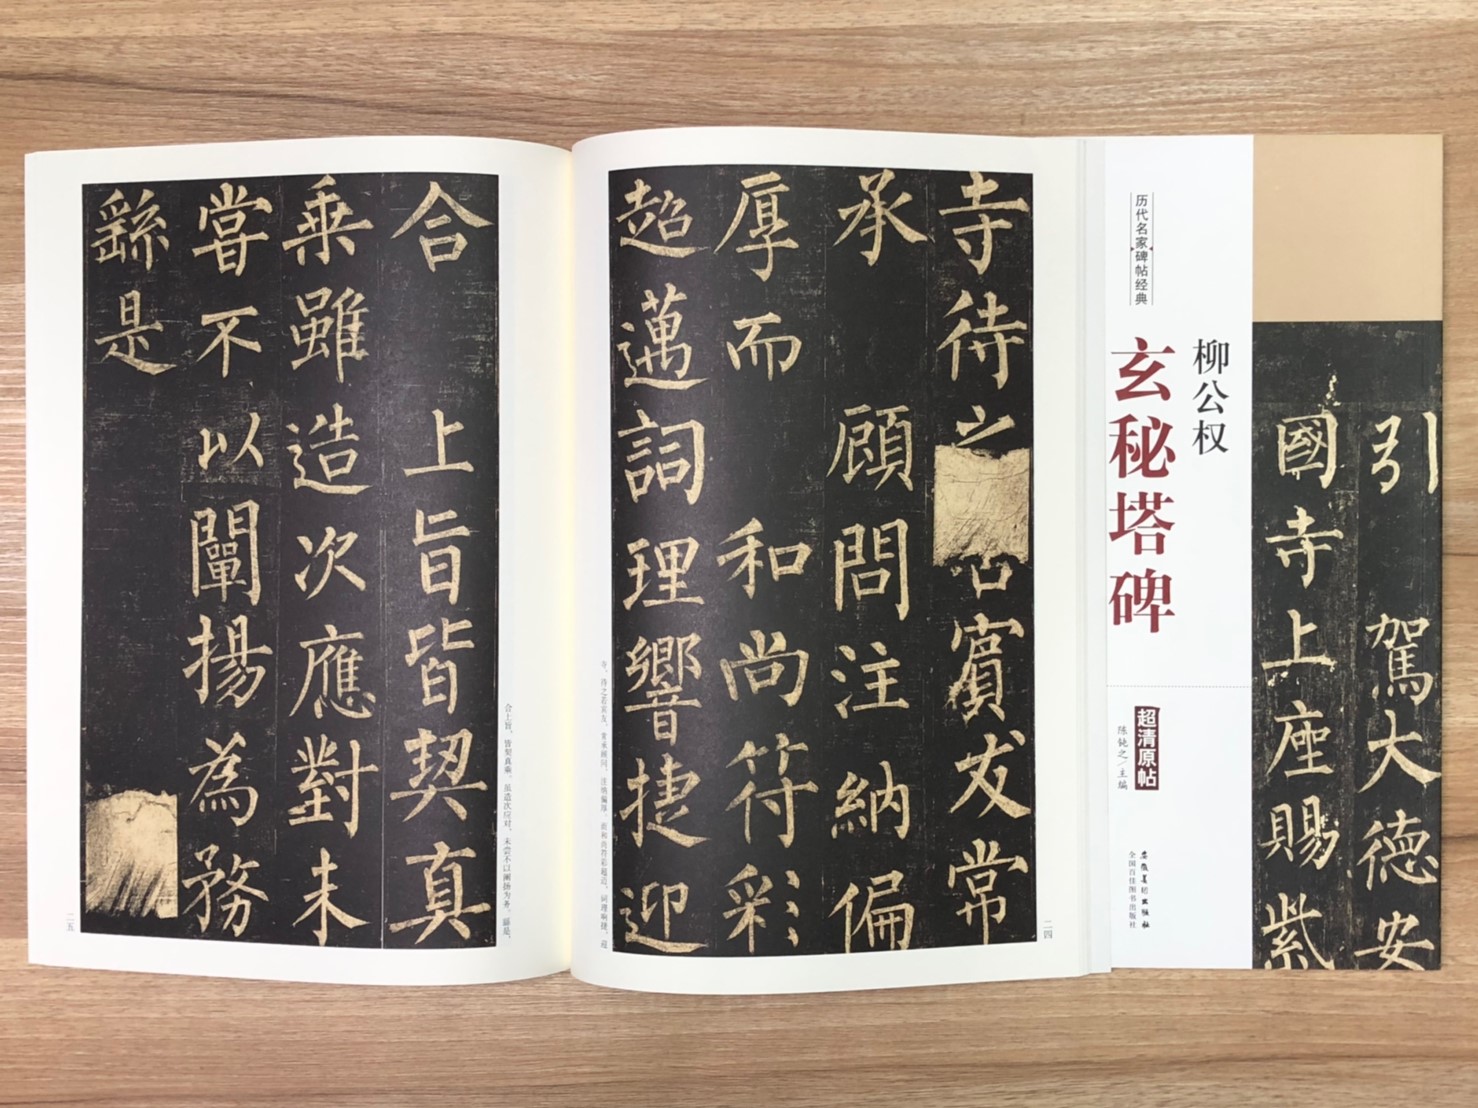 引駕大德安
國寺上座賜紫
柳公权
玄秘塔碑
历代名家碑帖经典
超清原帖
陈钝之/主编
安徽美术出版社
全国百佳图书出版社
寺待賓友常
承顧問注納偏
厚而和尚符彩
超邁詞理響捷迎
寺，待之若宾友。常承顾问，注纳偏厚。而和尚符彩超迈，词理响捷，迎
二四
合上旨皆契真
乘雖造次應對未
嘗不以闡揚為務
繇是
合上旨，皆契真乘。虽造次应对，未尝不以阐扬为务。繇是，
二五